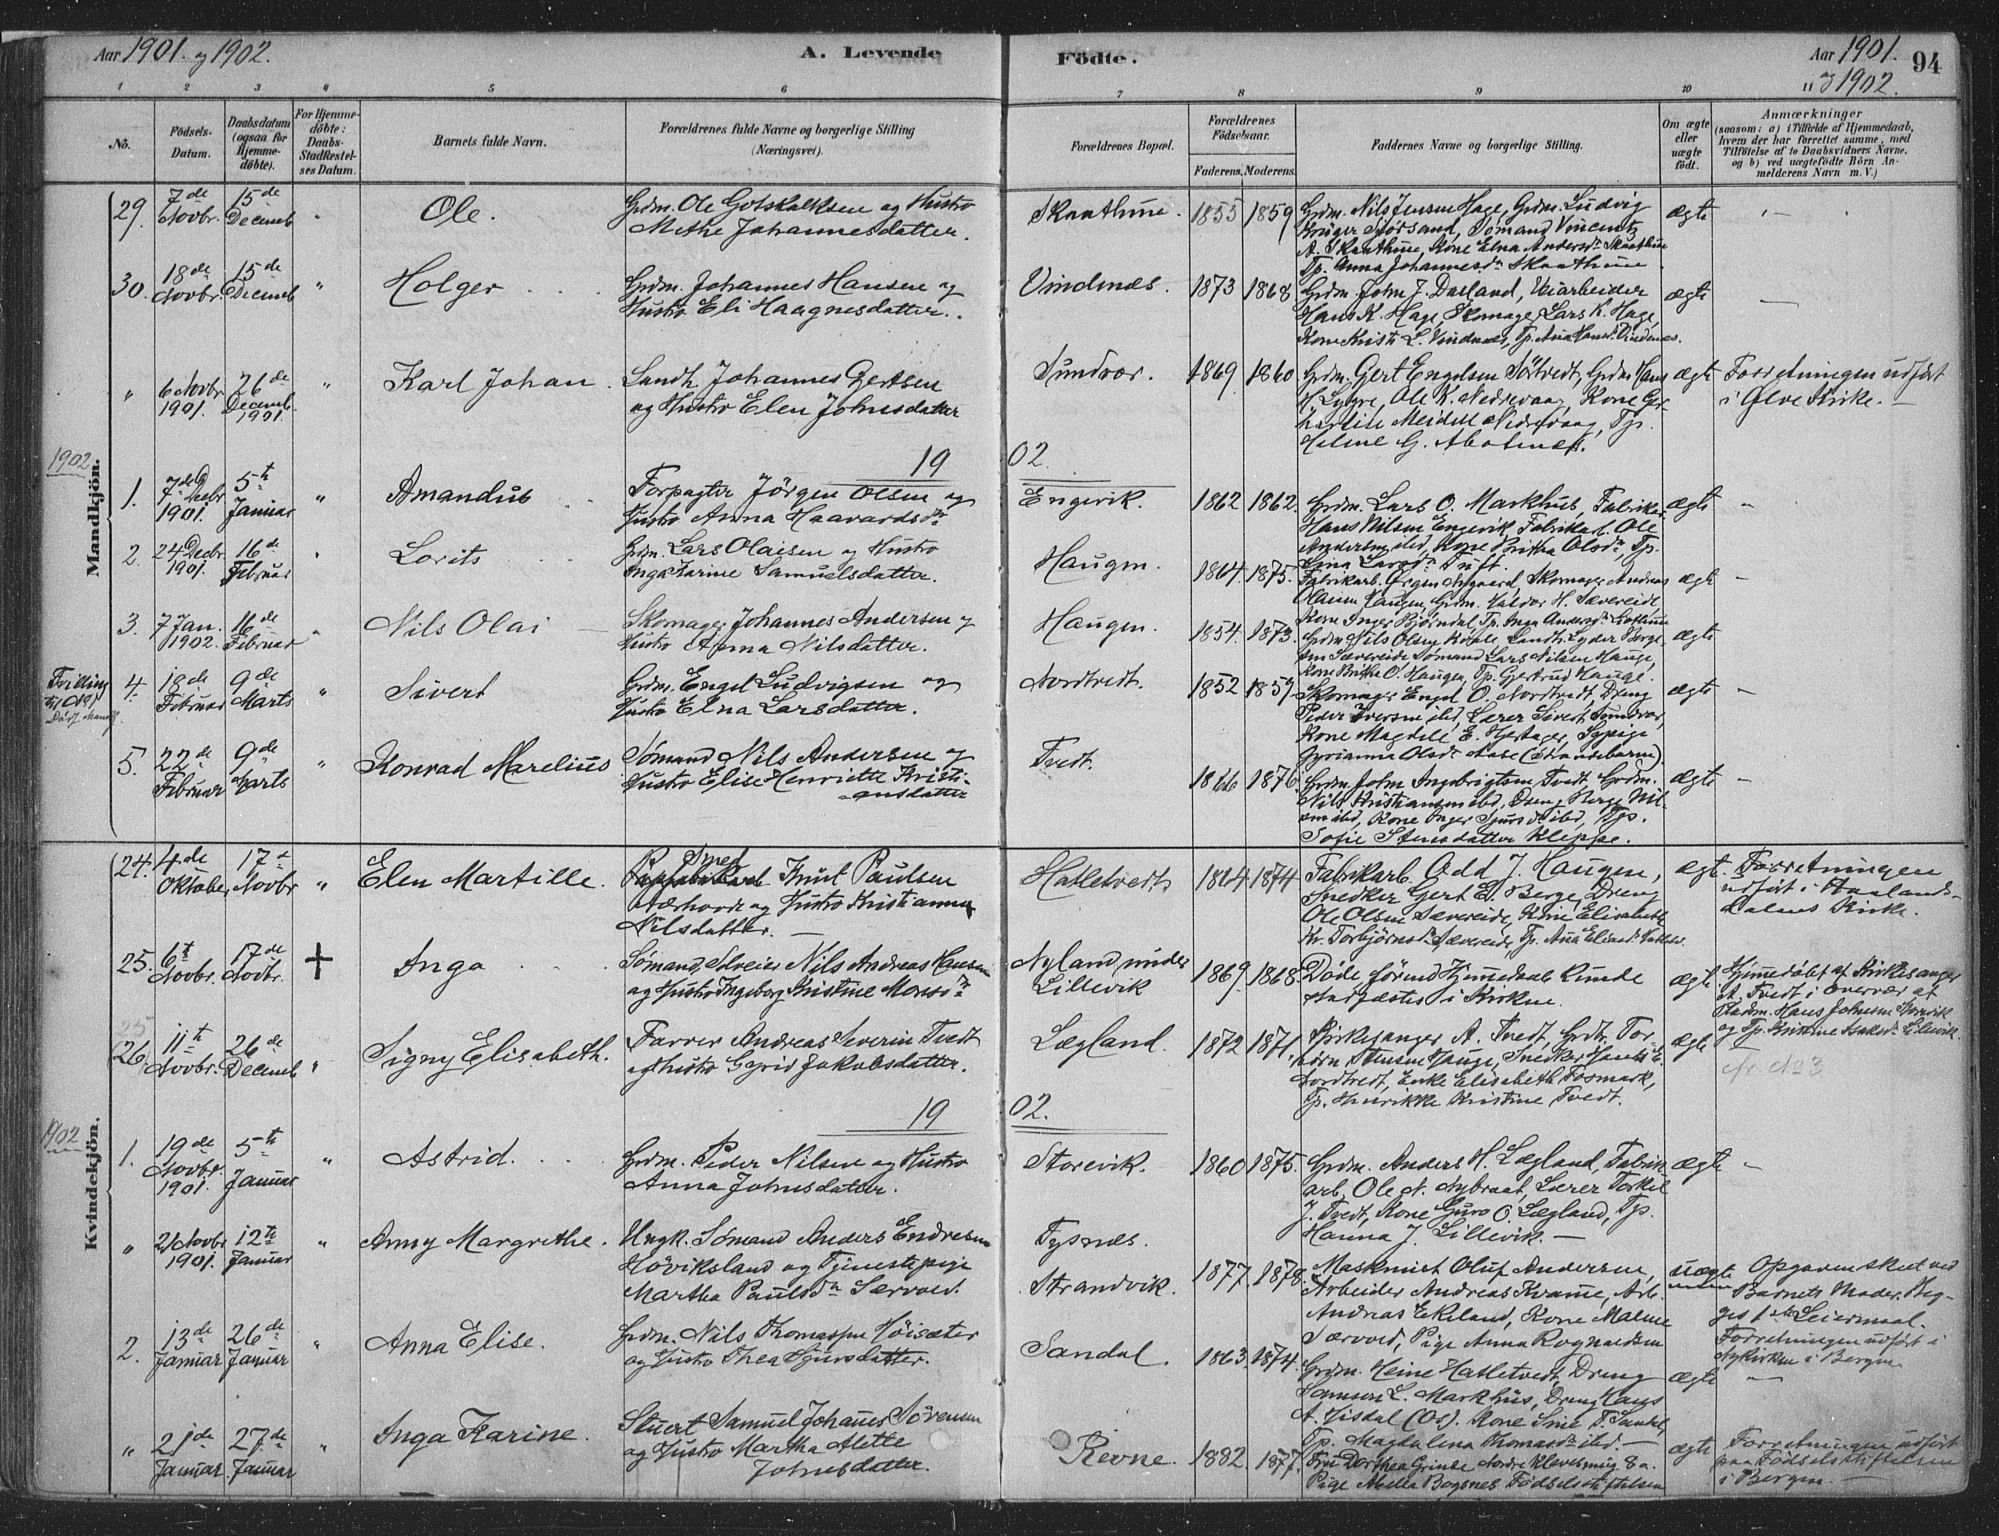 Aar 1901. og 1902.
A. Levende
Födte.
Aar 1901.
" og 1902.
94
1 2 3 4 5 6 7 8 9 10 11
No.
Födsels-
Datum.
Daabsdatum
(ogsaa for
Hjemme-
döbte).
For Hjemme-
döbte:
Daabs-
Stadfæstel-
ses Datum.
Barnets fulde Navn.
Forældrenes fulde Navne og borgerlige Stilling
(Næringsvei).
Forældrenes Bopæl.
Forældrenes
Födselsaar.
Faderens. Moderens.
Faddernes Navne og borgerlige Stilling.
Om ægte
eller
uægte
födt.
Anmærkninger
(saasom: a) i Tilfælde af Hjemmedaab,
hvem der har forrettet samme, med
Tilföielse af to Daabsvidners Navne.
og b) ved uægtefödte Börn An-
melderens Navn m. V.)
Mandkjön.
29. 7de Novbr. 15de Decemb " Ole.
Grdm. Ole Gotskalksen og Hustro
Methe Johannesdatter.
Skaathune. 1855 1859
Grdm. Nils Jensen Hage, Grdm. Ludvig
Krüger Sörsand, Sømand Vincents
A. Skaathune, Kone Elna Andersdr Skaathun
Tp. Anna Johannesdr Skaathune
ægte
30. 18de Novbr. 15de Decemb " Holger
Grdm. Johannes Hansen og
Hustro Eli Haagnesdatter.
Vindnæs. 1873 1868
Grdm. John J. Dasland, Veiarbeider
Hans K. Hage, Skomager Lars K. Hage,
Kone Kristi L. Vindnæs, Tp. Ana Hansdr Vindenes.
ægte
" 6 Novbr. 1901. 26de Decemb 1901. " Karl Johan.
Landh. Johannes Gertsen
og Hustro Elen Johnsdatter
Sundvor. 1869 1860
Grdm. Gert Engelsen Sörtvedt, Grdm Hans
H Lygre, Ole K. Nedrevaag, Kone Ger-
hardine Meidell Nedrevaag, Tp.
Helene G.
ægte
Forretningen udført
i Ølve Kirke.
1902
19 02.
1. 7de Decbr 1901. 5th Januar " Amandus
Forpagter Jörgen Olsen og
Hustro Anna Haavardsdr
Engevik. 1862 1862.
Grdm. Lars O. Markhus, Fabrikar.
Hans Nilsen Engevik, Fabrikarb. Ole
Andersen ibid, Kone Britha Olsdr Tp.
Lina Larsdr Tuft.
ægte "
2. 24 Decbr. 1901. 16de Februar " Lorits
Grdm. Lars Olaisen og Hustro
Inga Karine Samuelsdatter.
Haugen. 1864. 1875.
Fabrikarb. Ørgen Nygaard, Skomager Andreas
Olaisen Haugen, Grdm. Haldor H. Sævereide,
Kone Inger Björndal, Tp. Inga Andersdr
ægte
3. 7 Jan. 1902. 16de Februar " Nils Olai
Skomager Johannes Andersen og
Hustro Anna Nilsdatter.
Haugen. 1854. 1873.
Grdm Nils Olsen Landh. Lyder Berge-
Sævereide Sømand Lars Nilsen Hauge,
Kone Britha O. Haugen, Tp. Gertrud Hauge.
ægte
Tvilling
til No 1
4. 18de Februar 9de Marts " Sivert
Grdm. Engel Ludvigsen og
Hustro Elna Larsdatter.
Nordtvedt. 1852 1859
Skomager Engel O. Nordtvedt, Dreng
Peder Iversen ibid, Lærer Sivert Sundvor,
Kone Magdele E. Hertager, Sypige
Gyrianna Olsdr Aase (Strandebarm)
ægte
5. 22de Februar 9de Marts " Konrad Marelius
Sømand Nils Andersen og
Hustro Elise Henriette Kristi-
ansdatter
Tvedt. 1866 1876.
Grdm John Ingebrigtsen Tvedt, Grdm.
Nils Kristiansen ibd, Dreng Berge Nil-
sen ibd, Kone Inger Sjursdr ibd, Tp.
Sofie Stensdatter Kleppe.
ægte
Kvindekjön.
24. 4de Oktober 17d Novbr " Elen Martille.
Smed
Knut Paulsen
og Hustro Kristianna
Nilsdatter.
Hatletvedt 1864 1874
Fabrikarb. Odd J. Haugen,
Snedker Gert E. Berge, Dreng
Ole Olsen Sævereide, Kone Elisabeth
Kr. Torbjørnsdr Sævereide, Tp. Ana Eliasdr
ægt.
Forretningen
udført i Haalands-
dalens Kirke.
25. 6t Novbr. 17de Novbr. + Inga
Sømand, Selveier Nils Andreas Hansen
og Hustro Ingeborg Kristine Monsdr
Nyland under
Lillevik
1869. 1868.
Døde førend Hjemmedaab kunde
stadfæstes i Kirken.
ægte
Hjemmedøbt af Kirkesanger
A. Tvedt i Overvær af
Pladm. Hans Johnsen Storevik
og Tp. Kristine Isaksdr Lillevik
cfr No 3
25
26. 11th Novbr. 26de Decemb " Signy Elisabeth.
Farver Andreas Severin Tvedt
og Hustro Gyrid Jakobsdatter.
Lægland. 1872 1871.
Kirkesanger A. Tvedt, Grdm. Tor-
björn Stensen Hauge, Snedker Hans E.
Nordtvedt, Enke Elisabeth Fosmark,
Tp. Henrikke Kristine Tvedt.
ægte
1902
19 02.
1. 19de Novbr. 1901. 5th Januar " Astrid.
Grdm. Peder Nilsen og Hustro
Anna Johnsdatter.
Storevik. 1860 1875.
Grdm. Anders H. Lægland, Fabrik
arb. Ole N. Nybraat, Lærer Torkel
J. Tvedt, Kone Guro O. Lægland, Tp.
Hanna J. Lillevik.
ægte "
" 21 Novbr 1901. 12th Januar " Anny Margrethe.
Ungk. Sømand Anders Endresen
Høviksland og Tjenestepige
Martha Paulsdr Særvold.
Tysnæs.
Strandvik. 1877. 1878.
Maskinist Oluf Andersen,
Arbeider Andreas Kvamme, Arb.
Andreas Ekeland, Kone Malene
Særvold, Pige Anna Rognaldsen
uægte
Opgaven skeet ved
Barnets Moder. Beg-
ges 1ste Leiermaal.
Forretningen udført i
Nykirken i Bergen
2. 13de Januar 26de Januar " Anna Elise.
Grdm. Nils Thomassen Høisæter
og Hustro Thea Sjursdatter.
Sandal. 1863. 1874.
Grdm. Heine Hatletvedt, Dreng
Samson L. Markhus, Dreng Hans
A. Lisdal (Os). Kone Sine T. Sandal,
Tp. Magdalena Thomasdr ibd.
ægte
" 21de Januar. 27de Januar " Inga Karine.
Stuert Samuel Johannes Sørensen
og Hustro Martha Alette
Johnsdatter.
Revne. 1882 1877.
Fru Dorthea Grinde Nordre Klevesmug 8a.
Pige Mella Bogsnes Fødselsstiftelsen
ægte
Forretningen udført
paa Fødselsstiftelsen
i Bergen.